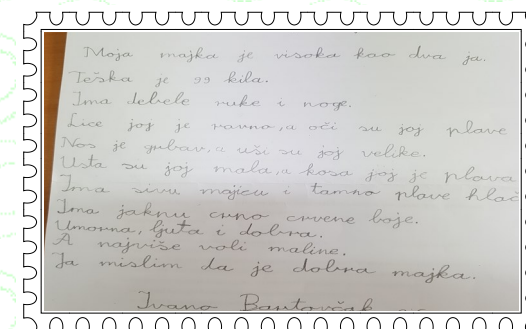 Moja majka je visoka kao dva ja.
Teška je 99 kila.
Ima debele ruke i noge.
Lice joj je ravno, a oči su joj plave
Nos je grbav, a uši su joj velike.
Usta su joj mala, a kosa joj je plava
Ima sivu majicu i tamno plave hlač
Ima jaknu crno crvene boje.
Umorna, ljuta i dobra.
A najviše voli maline.
Ja mislim da je dobra majka.
Ivano